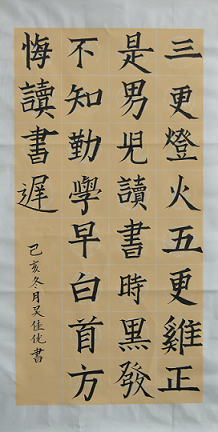 三更燈火五更雞正
是男児讀書時黑發
不知勤學早白首方
悔讀書遲
己亥冬月吴佳侊書